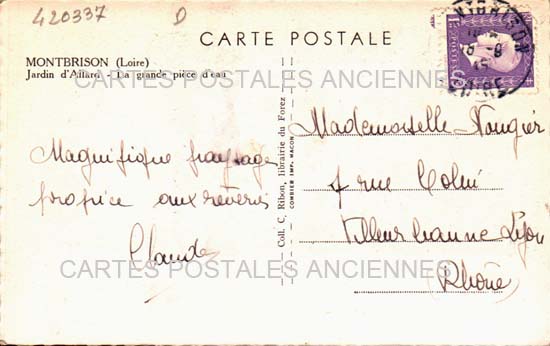 420337
D
CARTE POSTALE
MONTBRISON (Loire)
Jardin d'Allard - La grande pièce d'eau
CARTES POSTALES ANCIENNES
Magnifique paysage
propice aux rêveries
Claude
Coll. C. Ribon, librairie du Forez
COMBIER IMP. MACON
Mademoiselle Nougier
7 rue
Villeurbanne Lyon
(Rhône)
CARTES POSTALES ANCIENNES